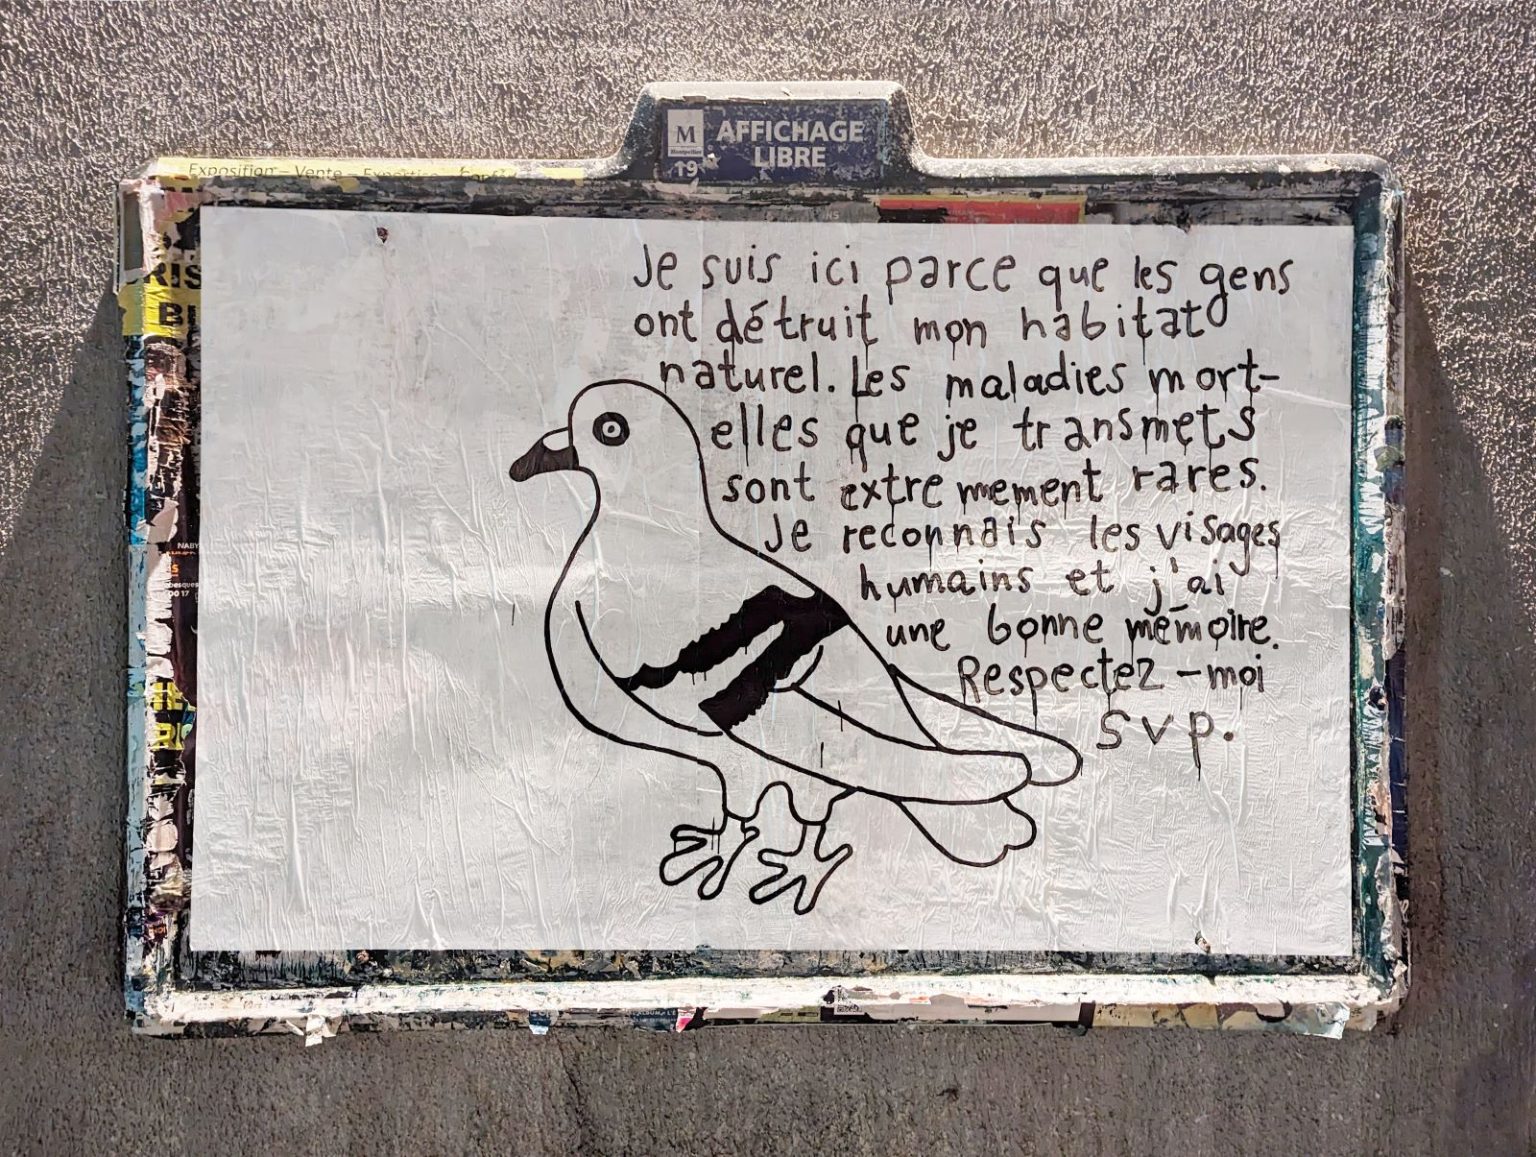 M AFFICHAGE
Montpellier LIBRE
19
Exposition – Vente – Expertise
RIS
BI
NABY
Je suis ici parce que les gens
ont détruit mon habitat
naturel. Les maladies mort-
elles que je transmets
sont extremement rares.
Je reconnais les visages
humains et j'ai
une bonne mémoire.
Respectez-moi
svp.